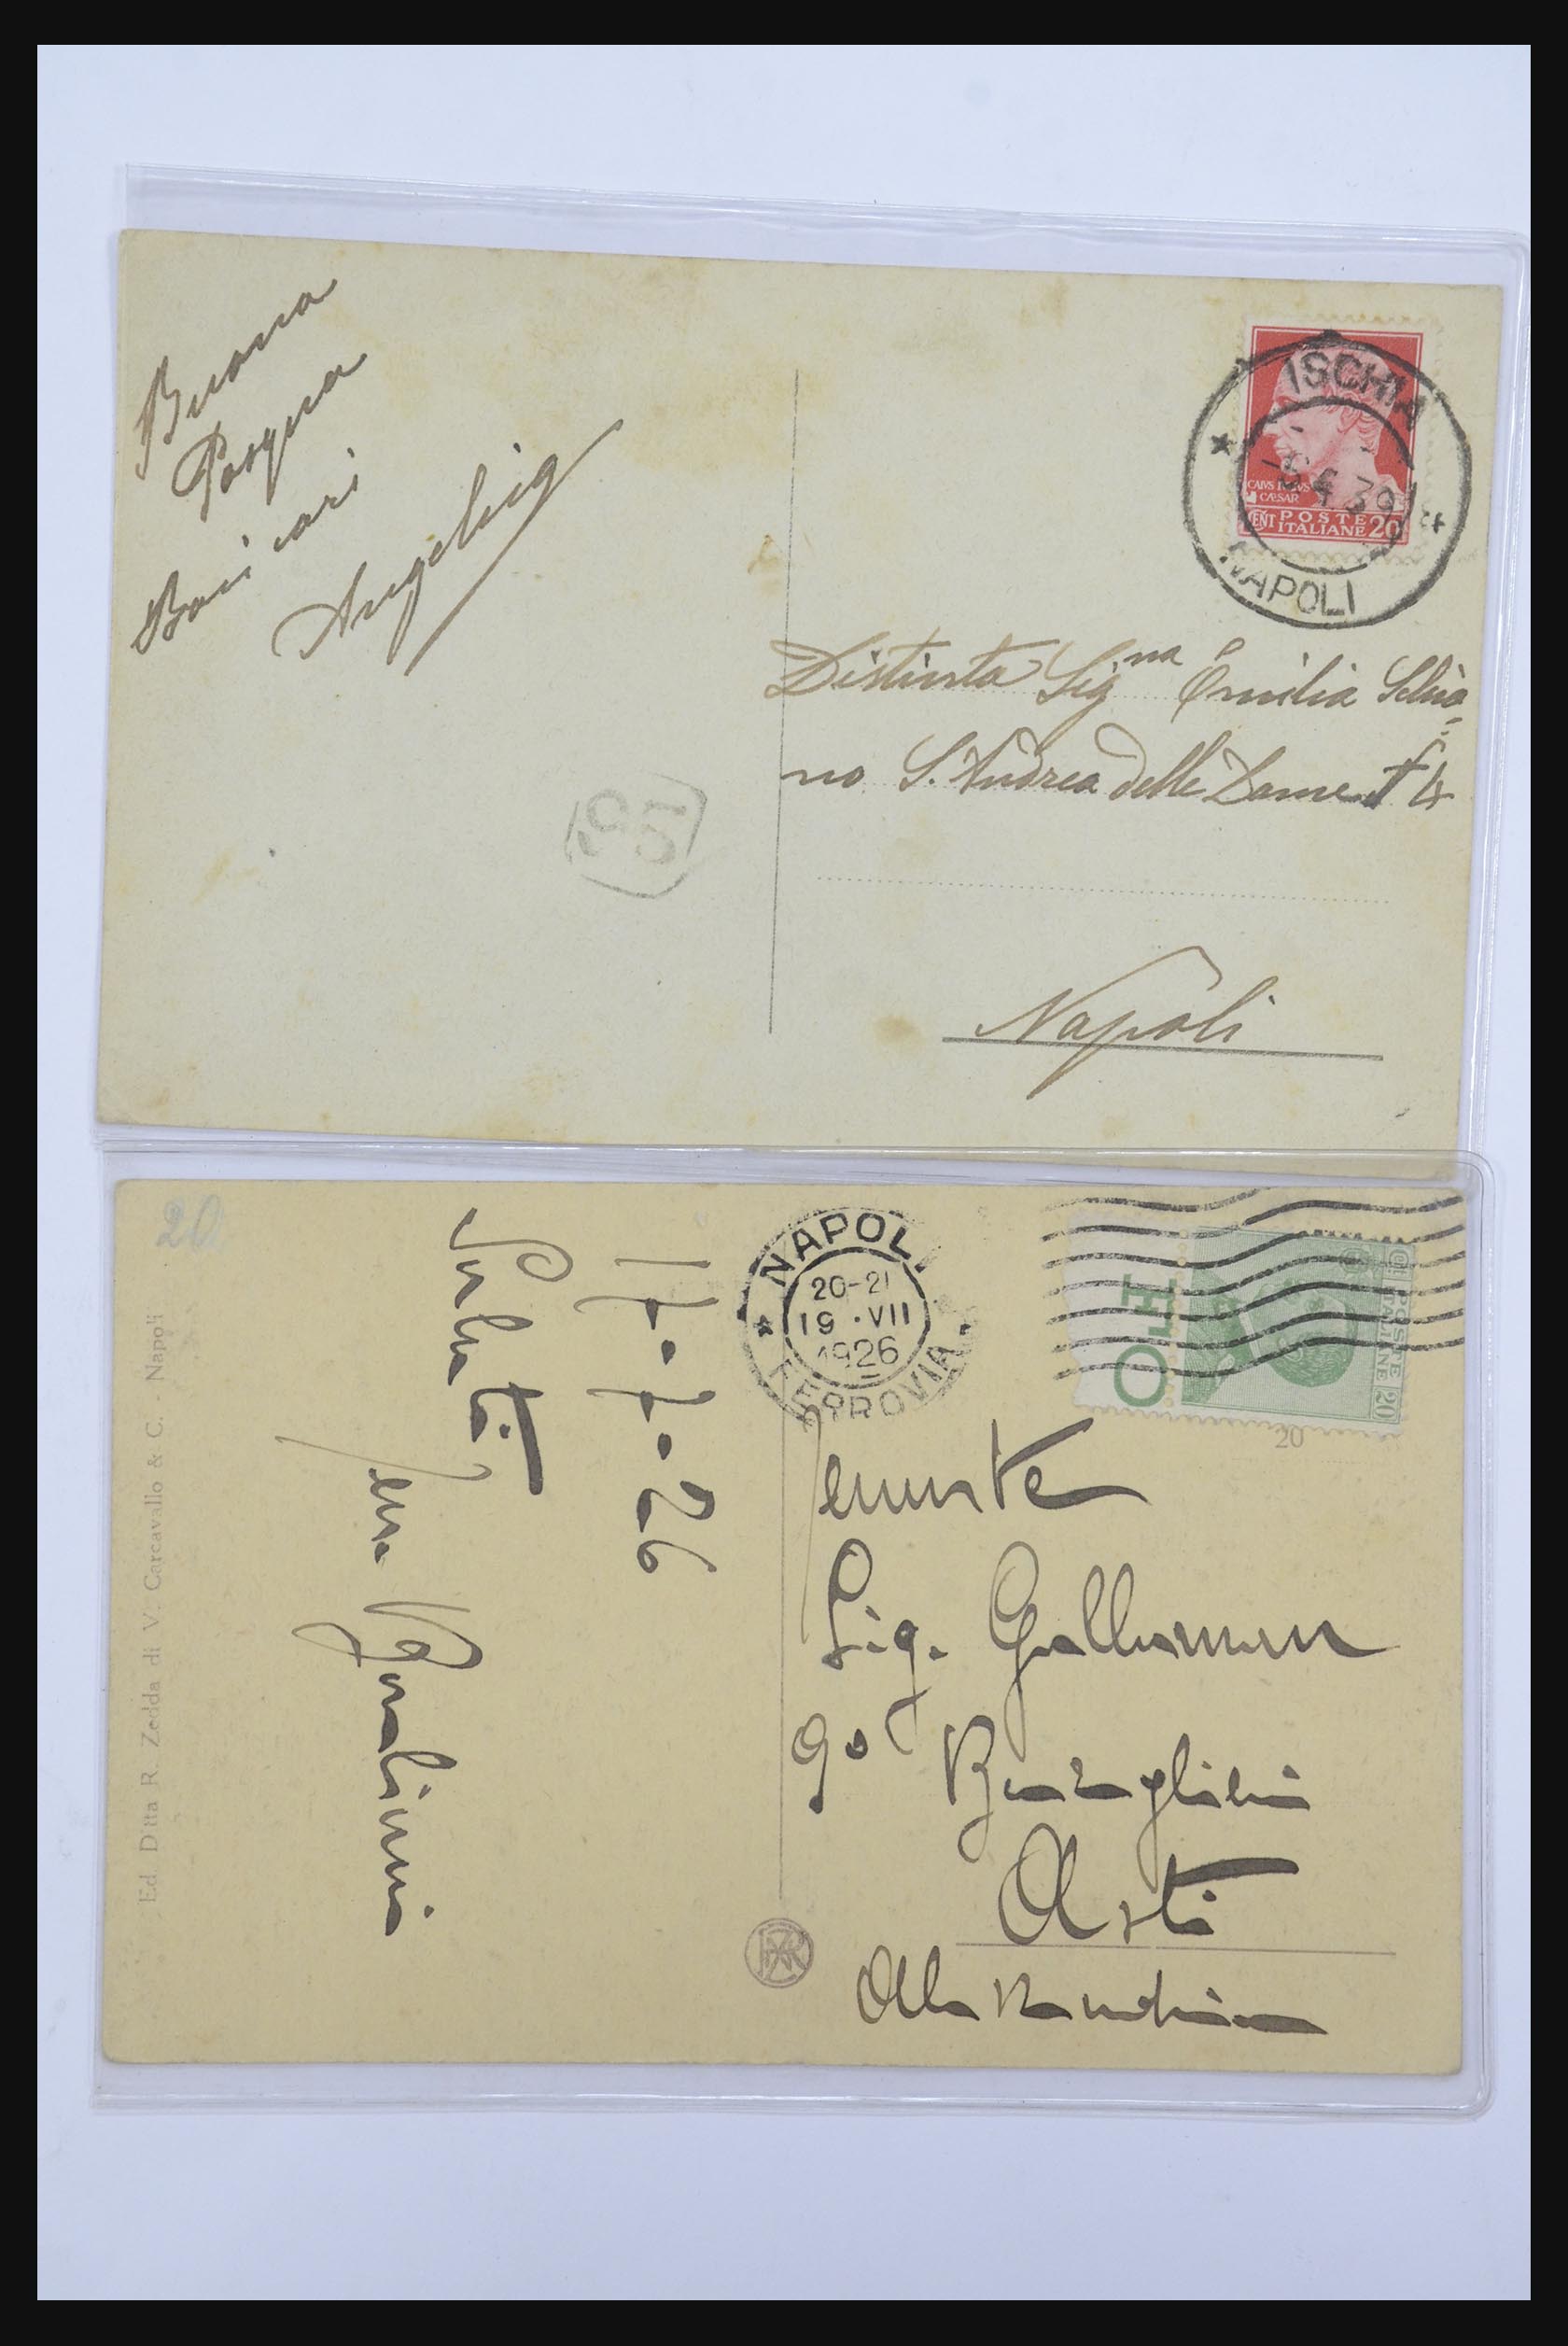 Buona
Pasqua
Baci cari
Angelina
ISCHIA
-6.4.39
NAPOLI
CAIVS IVLIVS
CÆSAR
CENT POSTE
ITALIANE 20
Distinta Sig.na Emilia Schia=
no S. Andrea delle Dame 4
95
Napoli
20
NAPOLI
20-21
19·VII
1926
FERROVIA
POSTE
ITALIANE 20
20
17-7-26
Saluti
Sig.
Bersaglieri
Asti
Alessandria
Ed. Ditta R. Zedda di V. Carcavallo & C. - Napoli